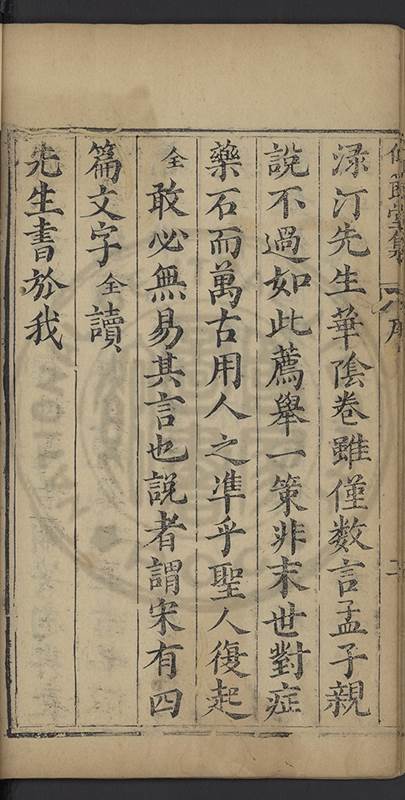 節堂集
序
二
淥汀先生華陰卷雖僅數言孟子親
說不過如此薦舉一策非末世對症
藥石而萬古用人之準乎聖人復起
全敢必無易其言也說者謂宋有四
篇文字全讀
先生書於我